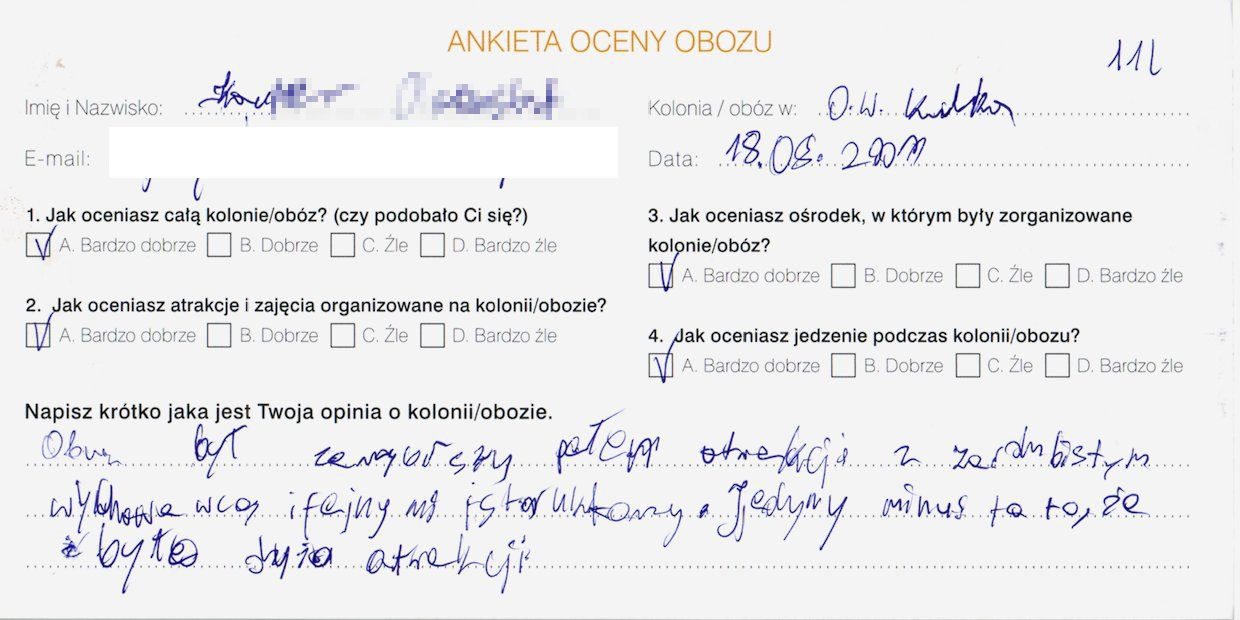 ANKIETA OCENY OBOZU
11L
Imię i Nazwisko:
Kolonia / obóz w: O.W.
E-mail:
Data: 18.08.
1. Jak oceniasz całą kolonie/obóz? (czy podobało Ci się?)
V A. Bardzo dobrze B. Dobrze C. Źle D. Bardzo źle
2. Jak oceniasz atrakcje i zajęcia organizowane na kolonii/obozie?
V A. Bardzo dobrze B. Dobrze C. Źle D. Bardzo źle
3. Jak oceniasz ośrodek, w którym były zorganizowane
kolonie/obóz?
V A. Bardzo dobrze B. Dobrze C. Źle D. Bardzo źle
4. Jak oceniasz jedzenie podczas kolonii/obozu?
V A. Bardzo dobrze B. Dobrze C. Źle D. Bardzo źle
Napisz krótko jaka jest Twoja opinia o kolonii/obozie.
był atrakcji z
i fajnymi . Jedyny minus to to, że
było dużo atrakcji